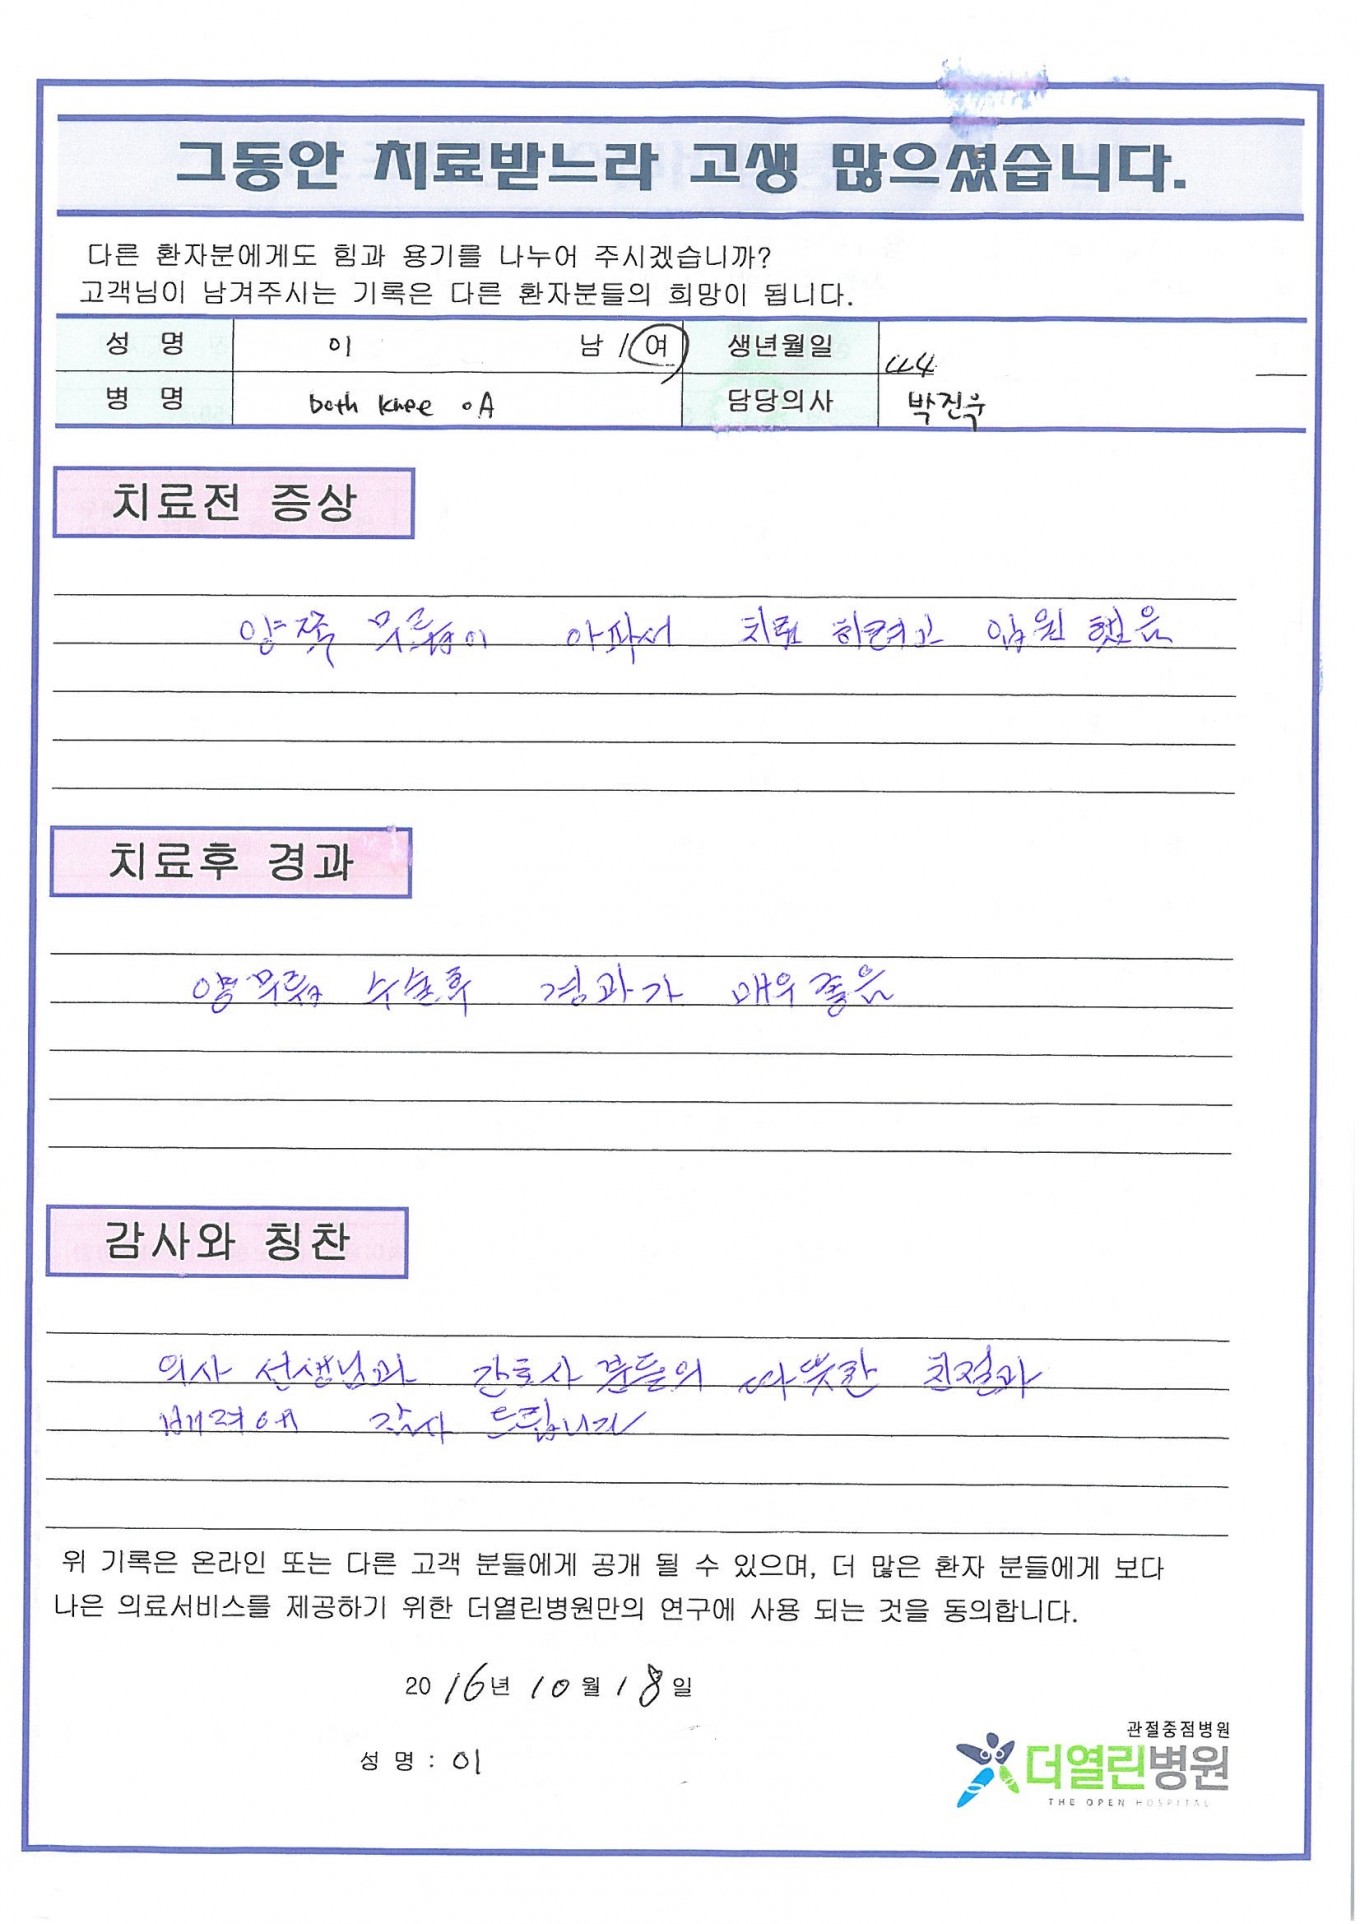 그동안 치료받느라 고생 많으셨습니다.
다른 환자분에게도 힘과 용기를 나누어 주시겠습니까?
고객님이 남겨주시는 기록은 다른 환자분들의 희망이 됩니다.
성 명 이 남 / 여 생년월일 44
병 명 both knee OA 담당의사 박진우
치료전 증상
양쪽 무릎이 아파서 치료 하려고 입원 했음
치료후 경과
양무릎 수술후 경과가 매우 좋음
감사와 칭찬
의사 선생님과 간호사 분들의 따뜻한 친절과
배려에 감사 드립니다
위 기록은 온라인 또는 다른 고객 분들에게 공개 될 수 있으며, 더 많은 환자 분들에게 보다
나은 의료서비스를 제공하기 위한 더열린병원만의 연구에 사용 되는 것을 동의합니다.
2016년 10월 18일
성 명 : 이
관절중점병원
더열린병원
THE OPEN HOSPITAL